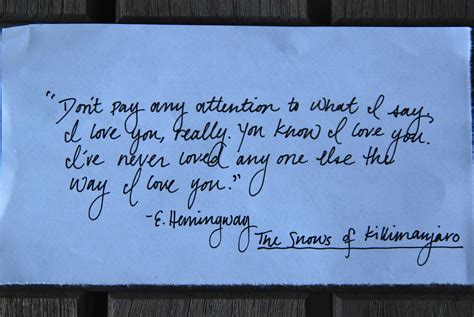 "Don't pay any attention to what I say,
I love you, really. You know I love you.
I've never loved any one else the
way I love you."
-E. Hemingway
The Snows of Kilimanjaro